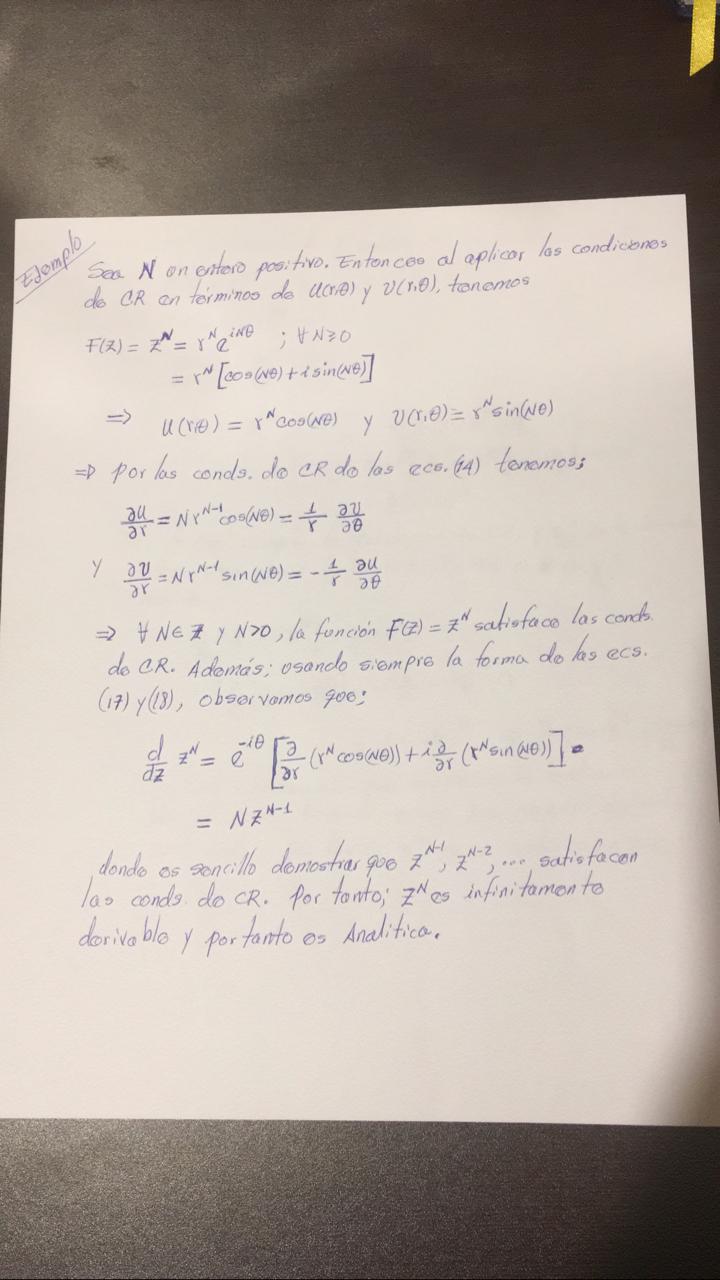 Ejemplo
Sea N un entero positivo. Entonces al aplicar las condiciones
de CR en términos de U(r,θ) y V(r,θ), tenemos
F(z) = z^N = r^N e^{iNθ} ; ∀ N≥0
= r^N [cos(Nθ) + i sin(Nθ)]
⇒ U(r,θ) = r^N cos(Nθ) y V(r,θ) = r^N sin(Nθ)
⇒ por las conds. de CR de las ecs. (14) tenemos;
∂U/∂r = N r^{N-1} cos(Nθ) = 1/r ∂V/∂θ
y ∂V/∂r = N r^{N-1} sin(Nθ) = - 1/r ∂U/∂θ
⇒ ∀ N∈ℤ y N>0, la función F(z) = z^N satisface las conds.
de CR. Además; usando siempre la forma de las ecs.
(17) y (18), observamos que;
d/dz z^N = e^{-iθ} [∂/∂r (r^N cos(Nθ)) + i ∂/∂r (r^N sin(Nθ))]
= N z^{N-1}
donde es sencillo demostrar que z^{N-1}, z^{N-2}, ... satisfacen
las conds. de CR. Por tanto; z^N es infinitamente
derivable y por tanto es Analítica.